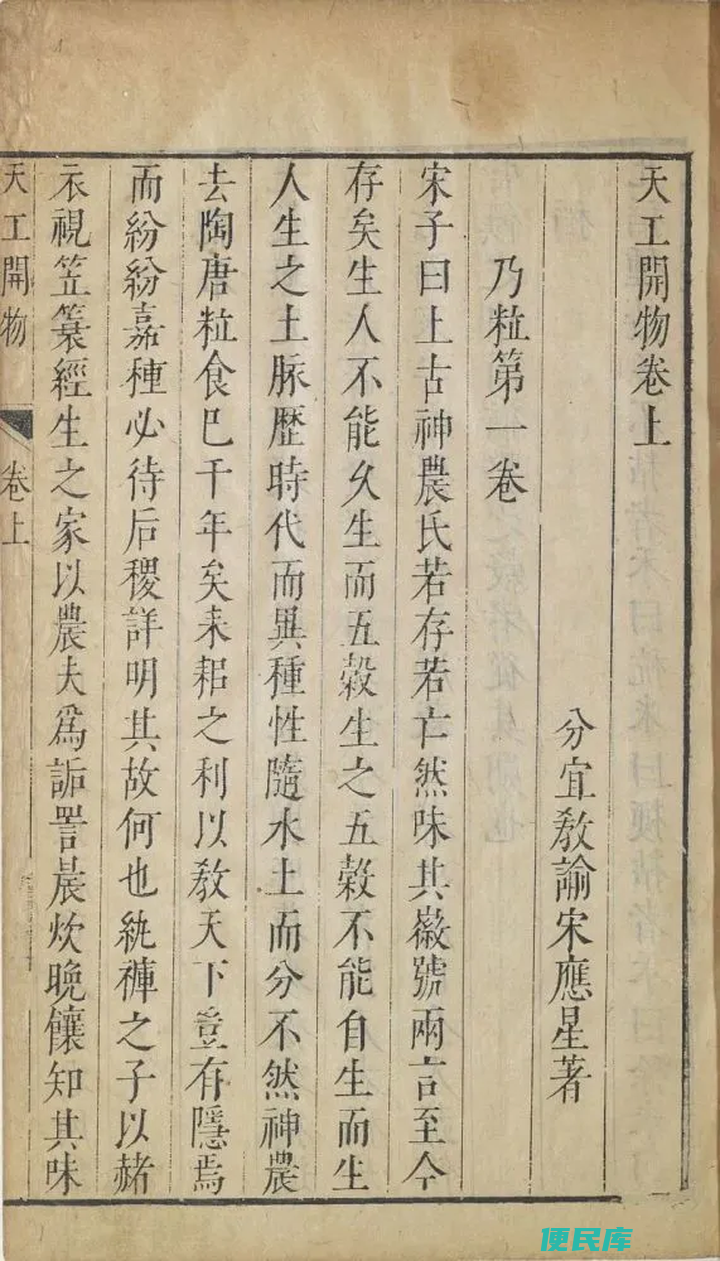 天工開物卷上
分宜教諭宋應星著
乃粒第一卷
宋子曰上古神農氏若存若亡然味其徽號兩言至今
存矣生人不能久生而五穀生之五穀不能自生而生
人生之土脉歷時代而異種性隨水土而分不然神農
去陶唐粒食已千年矣耒耜之利以教天下豈有隱焉
而紛紛嘉種必待后稷詳明其故何也紈褲之子以赭
衣視笠簑經生之家以農夫爲詬詈晨炊晚饟知其味
天工開物 卷上
便民库